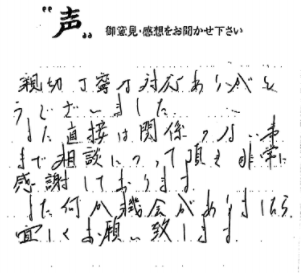 "声" 御意見・感想をお聞かせ下さい
親切丁寧な対応ありがと
うございました
また直接は関係のない事
まで相談にのって頂き非常に
感謝しております。
また何か機会がありましたら
宜しくお願い致します